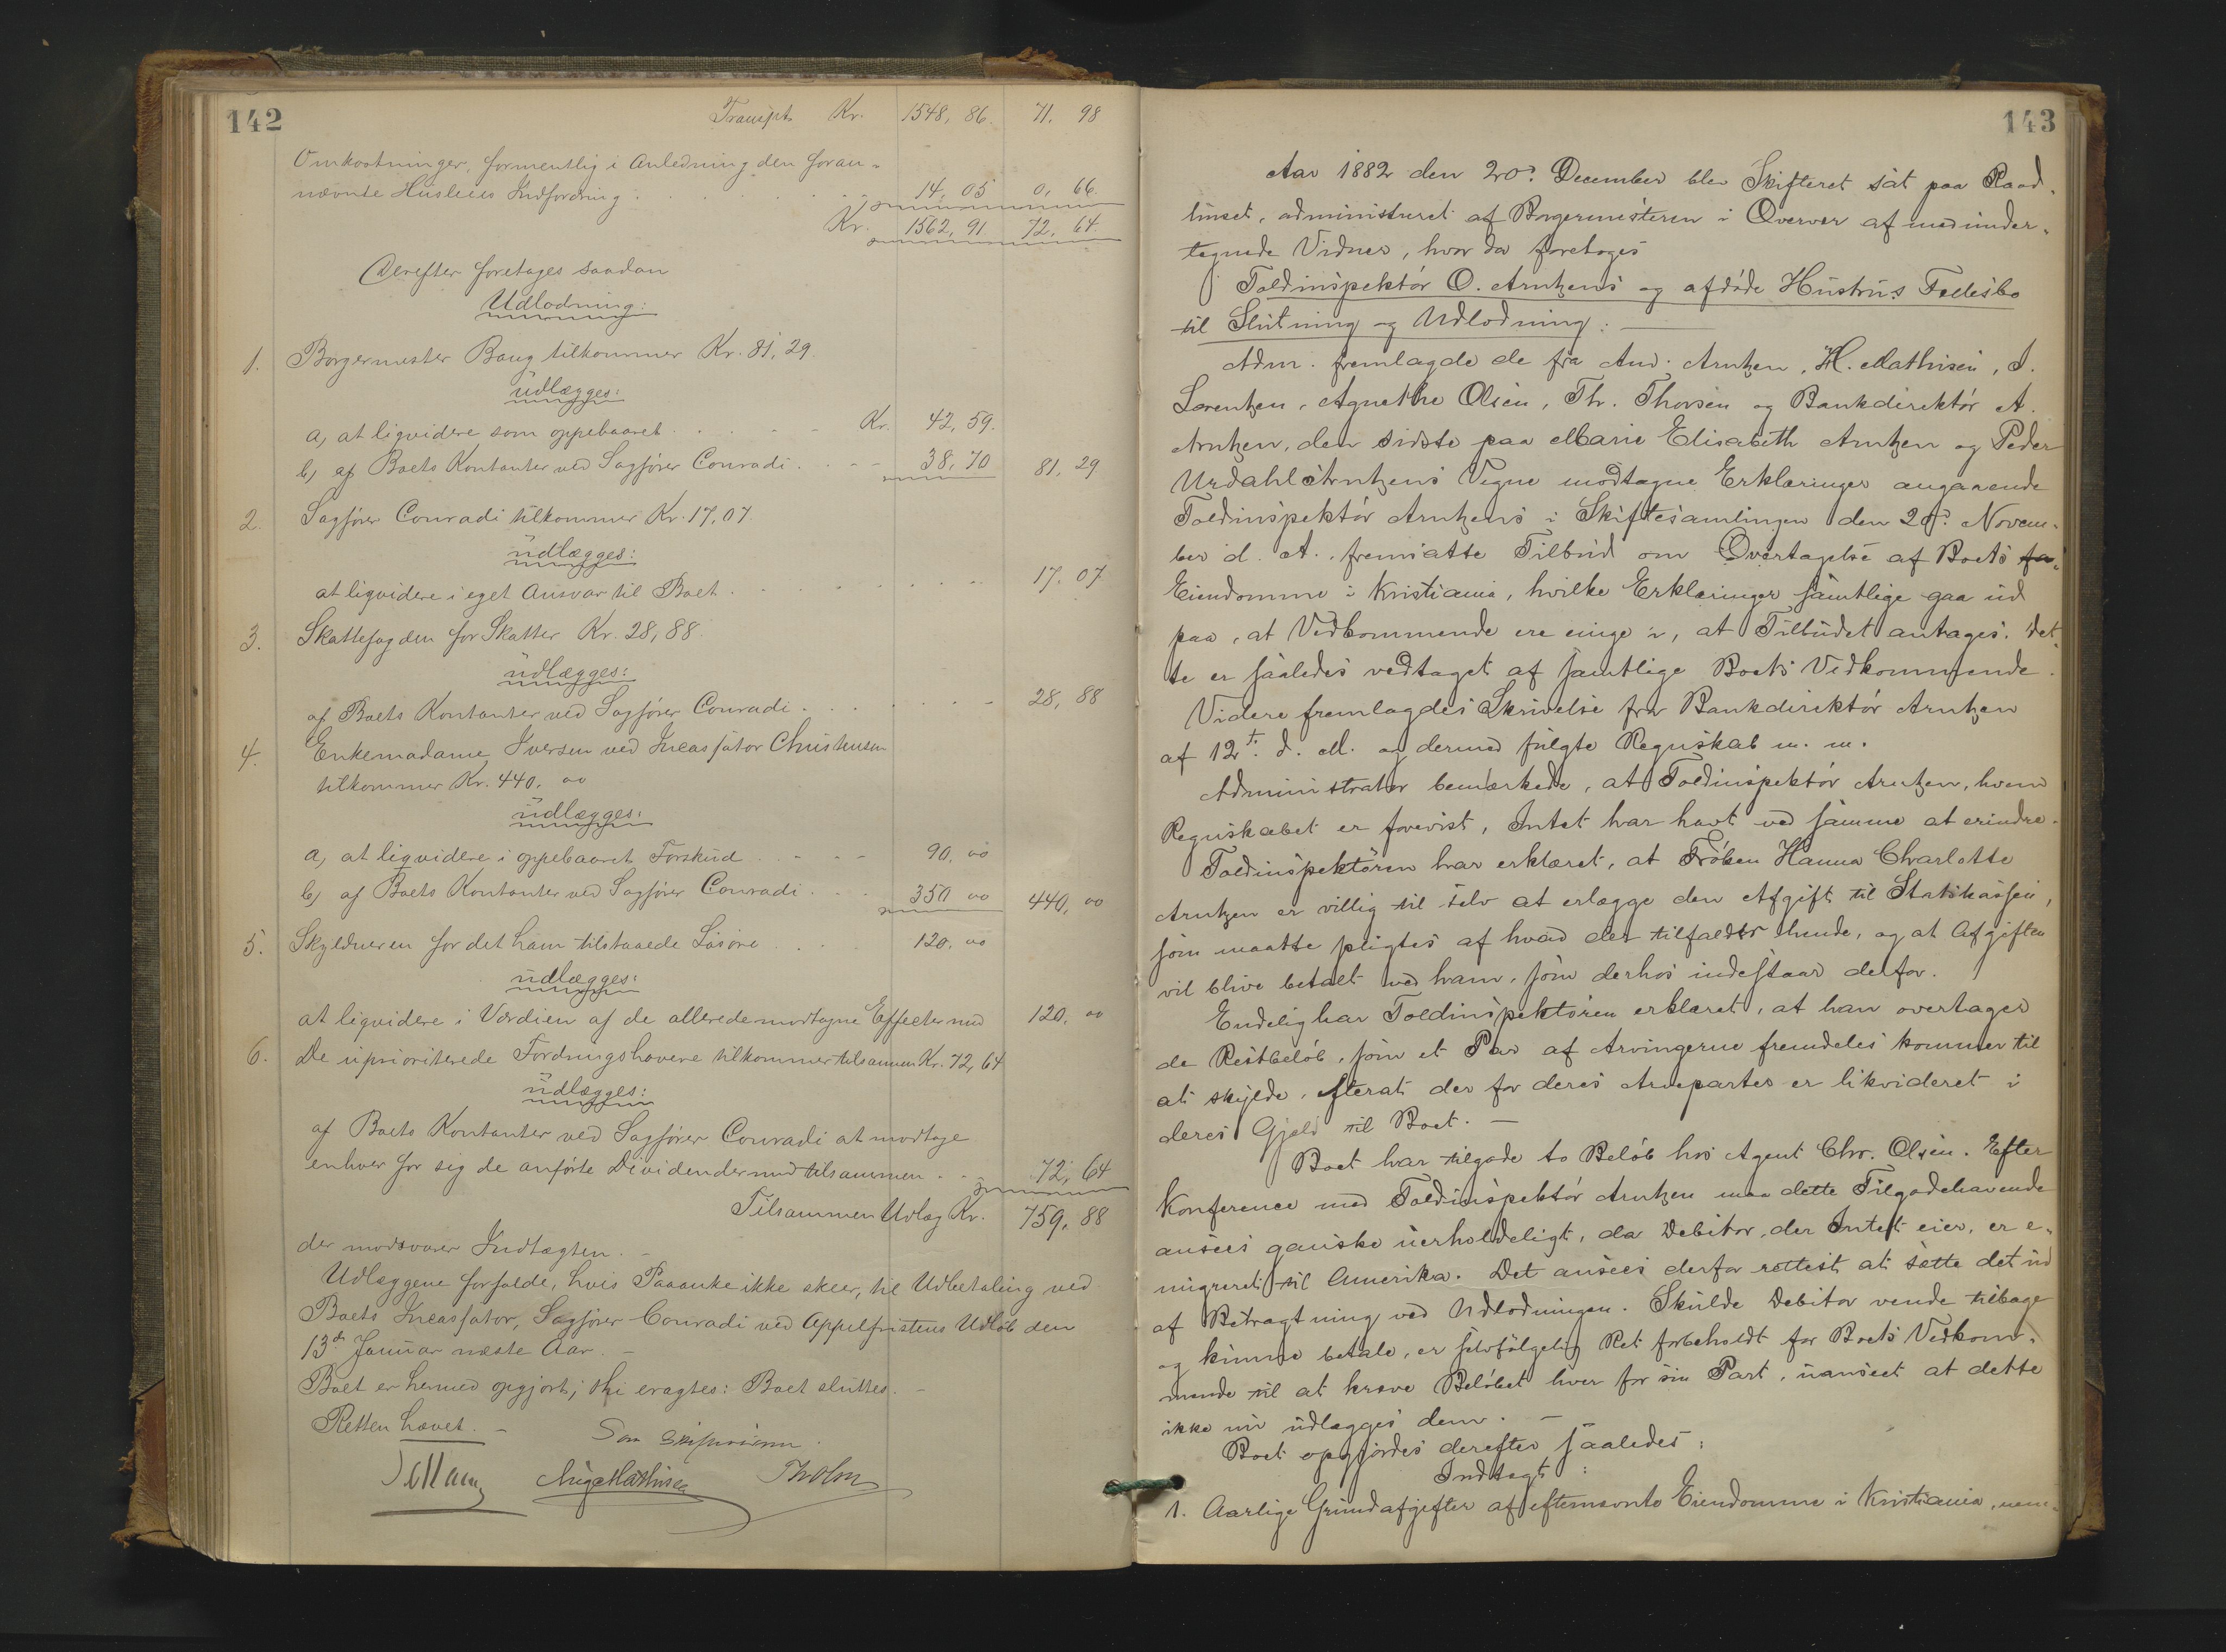 142
Transpt. Kr. 1548, 86. 71, 98
Omkostninger, formentlig i Anledning den foran-
nævnte Husleies Indfordring . . . . 14, 05 0, 66.
Kr. 1562, 91 72, 64.
Derefter foretoges saadan
Udlodning:
1. Borgermester Bang tilkommer Kr. 81, 29.
udlægges:
a, at liqvidere som oppebaaret . . . . Kr. 42, 59.
b, af Boets Kontanter ved Sagfører Conradi . . . 38, 70 81, 29
2. Sagfører Conradi tilkommer Kr. 17,07.
udlægges:
at liqvidere i eget Ansvar til Boet . . . . 17, 07
3. Skattefogden for Skatter Kr. 28,88.
udlægges:
af Boets Kontanter ved Sagfører Conradi . . . . 28, 88
4. Enkemadame Iversen ved Incassator Christensen
tilkommer Kr. 440, 00
udlægges:
a, at liqvidere i oppebaaret Forskud . . . . 90, 00
b, af Boets Kontanter ved Sagfører Conradi . . . 350 00 440, 00
5. Skyldneren for det ham tilstaaede Løsøre . . . 120, 00
udlægges:
at liqvidere i Værdien af de allerede modtagne Effecter med 120, 00
6. De uprioriterede Fordringshavere tilkommer tilsammen Kr. 72, 64
udlægges:
af Boets Kontanter ved Sagfører Conradi at modtage
enhver for sig de anførte Dividender med tilsammen . . 72, 64
Tilsammen Udlæg Kr. 759, 88
der modsvarer Indtægten. -
Udlæggene forfalde, hvis Paaanke ikke skeer, til Udbetaling ved
Boets Incassator, Sagfører Conradi ved Appelfristens Udløb den
13de Januar næste Aar. -
Boet er hermed opgjort; thi eragtes: Boet sluttes. -
Retten hævet. -
Som
Aug. Mathisen
143
Aar 1882 den 20d. December blev Skifteret sat paa Raad-
huset, administreret af Borgermesteren i Overvær af medunder-
tegnede Vidner, hvor da foretoges
Toldinspektør O. Arntzens og afdøde Hustrus Fællesbo
til Slutning og Udlodning: -
Adm. fremlagde de fra And. Arntzen, H. Mathisen, J.
Lorentzen, Agnethe Olsen, Th. Thorsen og Bankdirektør A.
Arntzen, den sidste paa Marie Elisabeth Arntzen og Peder
Urdahl Arntzens Vegne modtagne Erklæringer angaaende
Toldinspektør Arntzens i Skiftesamlingen den 20d. Novem-
ber d. A. fremsatte Tilbud om Overtagelse af Boets fa-
Eiendomme i Kristiania, hvilke Erklæringer samtlige gaa ud
paa, at Vedkommende ere enige i, at Tilbudet antages. Det-
te er saaledes vedtaget af samtlige Boets Vedkommende.
Videre fremlagdes Skrivelse fra Bankdirektør Arntzen
af 12t. d. M. og dermed fulgte Regnskab m. m.
Administrator bemærkede, at Toldinspektør Arntzen, hvem
Regnskabet er forevist, Intet har havt ved samme at erindre.
Toldinspektøren har erklæret, at Frøken Hanna Charlotte
Arntzen er villig til selv at erlægge den Afgift til Statskassen,
som maatte pligtes af hvad der tilfalder hende, og at Afgiften
vil blive betalt ved ham, som derhos indestaar derfor.
Endelig har Toldinspektøren erklæret, at han overtager
de Restbeløb, som et Par af Arvingerne fremdeles kommer til
at skylde, efterat der for deres Arveparter er likvideret i
deres Gjæld til Boet. -
Boet har tilgode to Beløb hos Agent Chr. Olsen. Efter
Konference med Toldinspektør Arntzen maa dette Tilgodehavende
ansees ganske uerholdeligt, da Debitor, der Intet eier, er e-
migreret til Amerika. Det ansees derfor rettest at sætte det ud
af Betragtning ved Udlodningen. Skulde Debitor vende tilbage
og kunne betale, er selvfølgelig Ret forbeholdt for Boets Vedkom-
mende til at kræve Beløbet hver for sin Part, uanseet at dette
ikke nu udlægges dem. -
Boet opgjordes derefter saaledes:
Indtægt:
1. Aarlige Grundafgifter af efternævnte Eiendomme i Kristiania, nem-